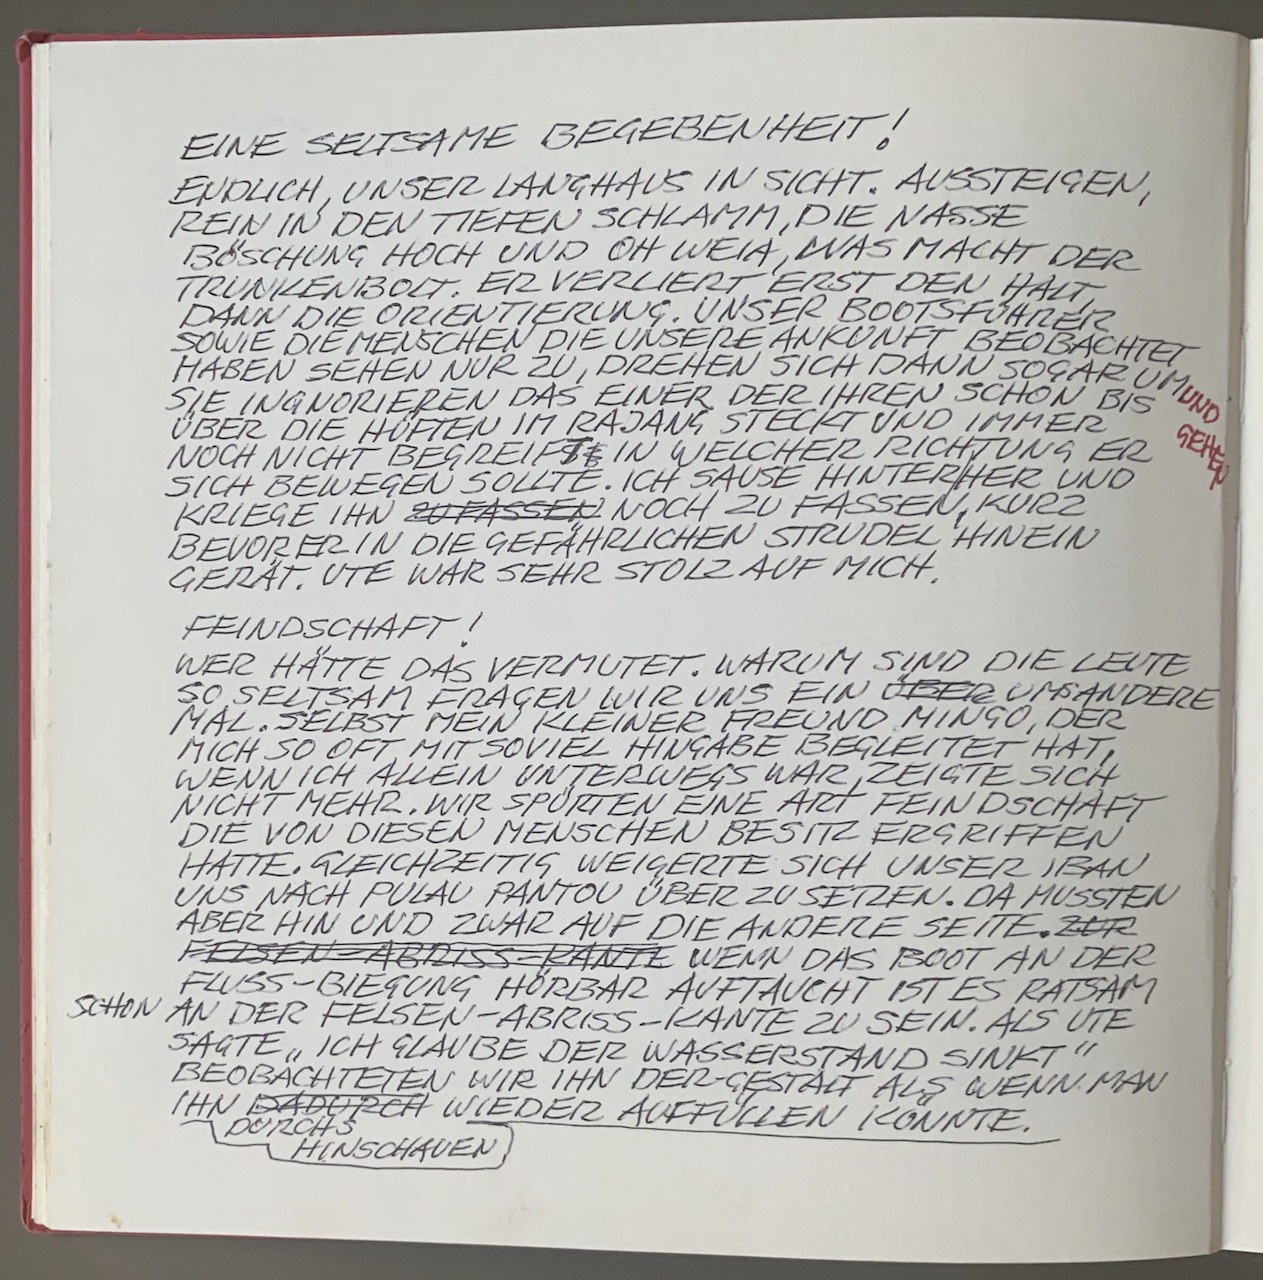 EINE SELTSAME BEGEBENHEIT!
ENDLICH, UNSER LANGHAUS IN SICHT. AUSSTEIGEN,
REIN IN DEN TIEFEN SCHLAMM, DIE NASSE
BÖSCHUNG HOCH UND OH WEIA, WAS MACHT DER
TRUNKENBOLT. ER VERLIERT ERST DEN HALT,
DANN DIE ORIENTIERUNG. UNSER BOOTSFÜHRER
SOWIE DIE MENSCHEN DIE UNSERE ANKUNFT BEOBACHTET
HABEN SEHEN NUR ZU, DREHEN SICH DANN SOGAR UM UND GEHEN
SIE INGNORIEREN DAS EINER DER IHREN SCHON BIS
ÜBER DIE HÜFTEN IM RAJANG STECKT UND IMMER
NOCH NICHT BEGREIFT IN WELCHER RICHTUNG ER
SICH BEWEGEN SOLLTE. ICH SAUSE HINTERHER UND
KRIEGE IHN ZU FASSEN NOCH ZU FASSEN, KURZ
BEVOR ER IN DIE GEFÄHRLICHEN STRUDEL HINEIN
GERÄT. UTE WAR SEHR STOLZ AUF MICH.
FEINDSCHAFT!
WER HÄTTE DAS VERMUTET. WARUM SIND DIE LEUTE
SO SELTSAM FRAGEN WIR UNS EIN ÜBER UMS ANDERE
MAL. SELBST MEIN KLEINER FREUND MINGO, DER
MICH SO OFT MIT SOVIEL HINGABE BEGLEITET HAT,
WENN ICH ALLEIN UNTERWEGS WAR, ZEIGTE SICH
NICHT MEHR. WIR SPÜRTEN EINE ART FEINDSCHAFT
DIE VON DIESEN MENSCHEN BESITZ ERGRIFFEN
HATTE. GLEICHZEITIG WEIGERTE SICH UNSER IBAN
UNS NACH PULAU PANTOU ÜBER ZU SETZEN. DA MUSSTEN
ABER HIN UND ZWAR AUF DIE ANDERE SEITE. ZUR
FELSEN-ABRISS-KANTE WENN DAS BOOT AN DER
FLUSS-BIEGUNG HÖRBAR AUFTAUCHT IST ES RATSAM
SCHON AN DER FELSEN-ABRISS-KANTE ZU SEIN. ALS UTE
SAGTE „ICH GLAUBE DER WASSERSTAND SINKT"
BEOBACHTETEN WIR IHN DER-GESTALT ALS WENN MAN
IHN DADURCH WIEDER AUFFÜLLEN KÖNNTE.
DURCHS
HINSCHAUEN